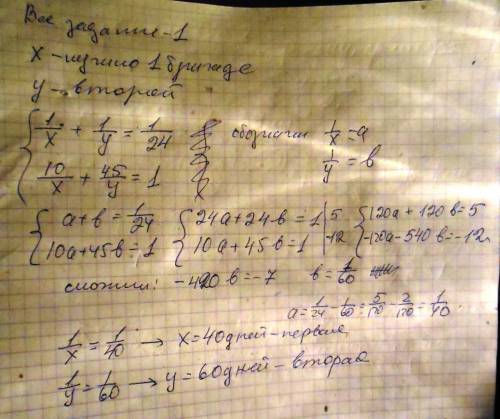 Все задание - 1
x - нужно 1 бригаде
y - второй
1/x + 1/y = 1/24 обозначим 1/x = a
10/x + 45/y = 1 1/y = b
a + b = 1/24 24a + 24b = 1 | 5 120a + 120b = 5
10a + 45b = 1 10a + 45b = 1 | -12 -120a - 540b = -12
сложим: -420b = -7 b = 1/60
a = 1/24 - 1/60 = 5/120 - 2/120 = 1/40.
1/x = 1/40 → x = 40 дней - первая
1/y = 1/60 → y = 60 дней - вторая